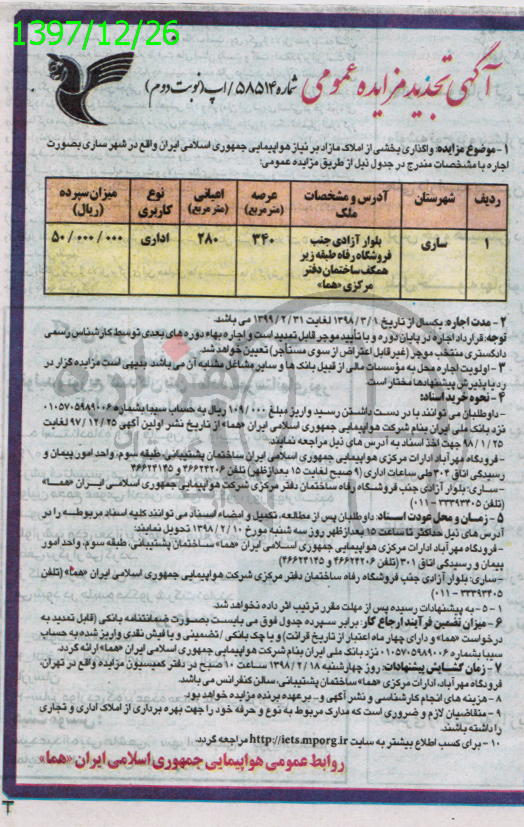 1397/12/26
آگهی تجدید مزایده عمومی شماره ۵۸۵۱۴/اپ(نوبت دوم)
۱- موضوع مزایده: واگذاری بخشی از املاک مازاد بر نیاز هواپیمایی جمهوری اسلامی ایران واقع در شهر ساری بصورت
اجاره با مشخصات مندرج در جدول ذیل از طریق مزایده عمومی:
ردیف شهرستان آدرس و مشخصات ملک عرصه (مترمربع) اعیانی (مترمربع) نوع کاربری میزان سپرده (ریال)
۱ ساری بلوار آزادی جنب ۳۴۰ ۲۸۰ اداری ۵۰/۰۰۰/۰۰۰
فروشگاه رفاه طبقه زیر
همکف ساختمان دفتر
مرکزی «هما»
۲- مدت اجاره: یکسال از تاریخ ۱۳۹۸/۳/۱ لغایت ۱۳۹۹/۲/۳۱ می باشد.
توجه: قرارداد اجاره در پایان دوره و با تأیید موجر قابل تمدید است و اجاره بهاء دوره های بعدی توسط کارشناس رسمی
دادگستری منتخب موجر (غیر قابل اعتراض از سوی مستأجر) تعیین خواهد شد.
۳- اولویت اجاره محل به مؤسسات مالی از قبیل بانک ها و سایر مشاغل مشابه آن می باشد. بدیهی است مزایده گزار در
رد یا پذیرش پیشنهادها مختار است.
۴- نحوه خرید اسناد:
- داوطلبان می توانند با در دست داشتن رسید واریز مبلغ ۱۰۹/۰۰۰ ریال به حساب سیبا بشماره ۰۱۰۵۷۰۵۹۸۹۰۰۶
نزد بانک ملی ایران بنام شرکت هواپیمایی جمهوری اسلامی ایران «هما» از تاریخ نشر اولین آگهی ۹۷/۱۲/۲۵ لغایت
۹۸/۱/۲۵ جهت اخذ اسناد به آدرس های ذیل مراجعه نمایند:
- فرودگاه مهرآباد ادارات مرکزی هواپیمایی جمهوری اسلامی ایران ساختمان پشتیبانی، طبقه سوم، واحد امور پیمان و
رسیدگی اتاق ۳۰۴ طی ساعات اداری (۹ صبح لغایت ۱۵ بعدازظهر) تلفن ۴۶۶۲۴۲۰۶ و ۴۶۶۲۴۱۴۵
- ساری: بلوار آزادی جنب فروشگاه رفاه ساختمان دفتر مرکزی شرکت هواپیمایی جمهوری اسلامی ایران «هما»
(تلفن ۳۳۳۹۳۴۰۵-۰۱۱)
۵- زمان و محل عودت اسناد: داوطلبان پس از مطالعه، تکمیل و امضاء اسناد می توانند کلیه اسناد مربوطه را در
آدرس های ذیل حداکثر تا ساعت ۱۵ بعدازظهر روز سه شنبه مورخ ۱۳۹۸/۲/۱۰ تحویل نمایند:
- فرودگاه مهرآباد ادارات مرکزی هواپیمایی جمهوری اسلامی ایران «هما» ساختمان پشتیبانی، طبقه سوم، واحد امور
پیمان و رسیدگی اتاق ۳۰۱ (تلفن ۴۶۶۲۴۲۰۶ و ۴۶۶۲۴۱۴۵)
- ساری: بلوار آزادی جنب فروشگاه رفاه ساختمان دفتر مرکزی شرکت هواپیمایی جمهوری اسلامی ایران «هما» (تلفن
۳۳۳۹۳۴۰۵-۰۱۱)
۵-۱- به پیشنهادات رسیده پس از مهلت مقرر ترتیب اثر داده نخواهد شد.
۶- میزان تضمین فرآیند ارجاع کار: برابر سپرده جدول فوق می بایست بصورت ضمانتنامه بانکی (قابل تمدید به
درخواست «هما» و دارای چهار ماه اعتبار از تاریخ قرائت) و یا چک بانکی / تضمینی و یا فیش نقدی واریز شده به حساب
سیبا بشماره ۰۱۰۵۷۰۵۹۸۹۰۰۶ نزد بانک ملی ایران بنام شرکت هواپیمایی جمهوری اسلامی ایران «هما» ارائه گردد.
۷- زمان گشایش پیشنهادات: روز چهارشنبه ۱۳۹۸/۲/۱۸ ساعت ۱۰ صبح در دفتر کمیسیون مزایده واقع در تهران،
فرودگاه مهرآباد، ادارات مرکزی «هما» ساختمان پشتیبانی، سالن کنفرانس می باشد.
۸- هزینه های انجام کارشناسی و نشر آگهی و... بر عهده برنده مزایده خواهد بود.
۹- متقاضیان لازم و ضروری است که مدارک مربوط به نوع و حرفه خود را جهت بهره برداری از املاک اداری و تجاری
را داشته باشند.
۱۰- برای کسب اطلاع بیشتر به سایت http://iets.mporg.ir مراجعه گردد.
روابط عمومی هواپیمایی جمهوری اسلامی ایران «هما»